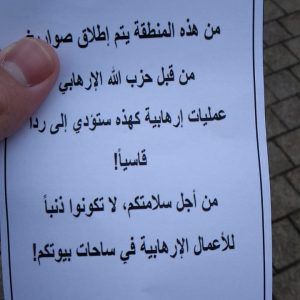 من هذه المنطقة يتم إطلاق
من قبل حزب الله الإرهابي
عمليات إرهابية كهذه ستؤدي إلى ردا
قاسياً!
من أجل سلامتكم، لا تكونوا ذنباً
للأعمال الإرهابية في ساحات بيوتكم!